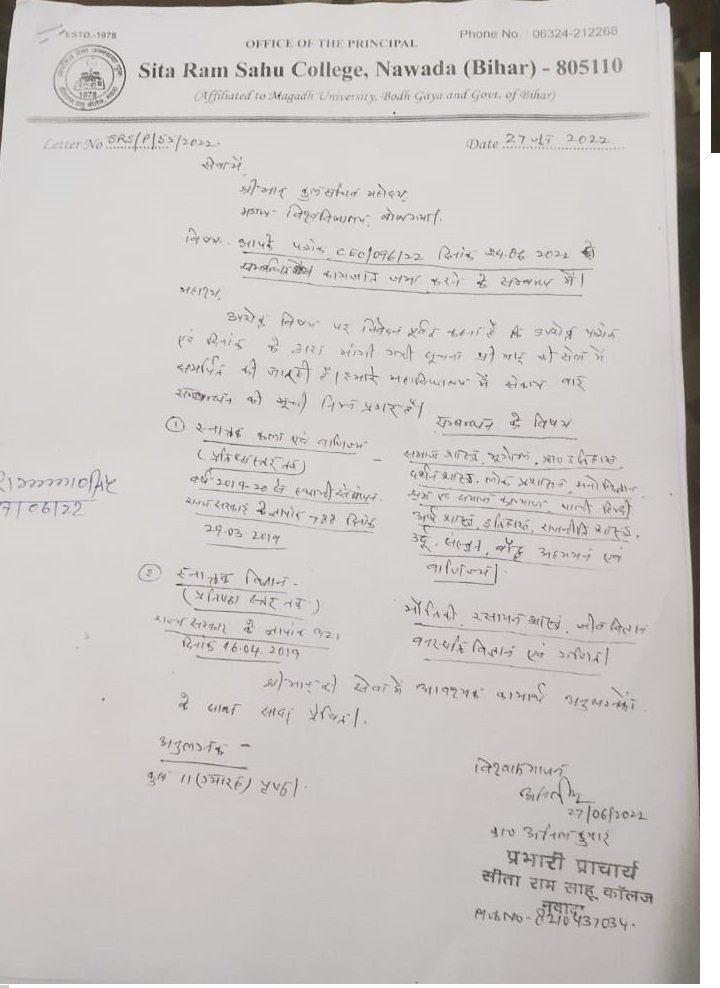 ESTD.-1978
OFFICE OF THE PRINCIPAL
Phone No. : 06324-212268
Sita Ram Sahu College, Nawada (Bihar) - 805110
(Affiliated to Magadh University, Bodh Gaya and Govt. of Bihar)
1978
Letter No SRS/P/53/2022.
Date 27 जून 2022
सेवा में,
श्रीमान् कुलसचिव महोदय,
मगध विश्वविद्यालय, बोधगया।
विषय - आपके पत्रांक CEO/096/22 दिनांक 24.06.2022 से
सम्बन्धित कागजात जमा करने के सम्बन्ध में।
महाशय,
उपरोक्त विषय पर निवेदन पूर्वक कहना है कि उपरोक्त पत्रांक
एवं दिनांक के द्वारा मांगी गयी सूचना श्रीमान् की सेवा में
समर्पित की जा रही है। हमारे महाविद्यालय में संकाय वार
सम्बन्धन की सूची निम्न प्रकार है।
सम्बन्धन के विषय
① स्नातक कला एवं वाणिज्य
(प्रतिष्ठा स्तर तक)
वर्ष 2019-20 से स्थायी
राज्य सरकार के ज्ञापांक 788 दिनांक
29.03.2019
समाज शास्त्र, भूगोल, प्रा० इतिहास,
दर्शन शास्त्र, लोक प्रशासन, मनोविज्ञान,
श्रम एवं समाज कल्याण, पाली, हिन्दी
अर्थ शास्त्र, इतिहास, राजनीति शास्त्र,
उर्दू, संस्कृत, बौद्ध अध्ययन एवं
वाणिज्य।
7/06/22
② स्नातक विज्ञान -
(प्रतिष्ठा स्तर तक)
राज्य सरकार के ज्ञापांक
दिनांक 16.04.2019
भौतिकी, रसायन शास्त्र, जीव विज्ञान
वनस्पति विज्ञान एवं गणित।
श्रीमान् की सेवा में आवश्यक कार्यार्थ अनुलग्नकों
के साथ सादर प्रेषित।
अनुलग्नक -
कुल 11 (ग्यारह) पृष्ठ।
विश्वासभाजन
27/06/2022
डा० अनिल कुमार
प्रभारी प्राचार्य
सीता राम साहू कॉलेज
नवादा
Mob No - 8210437034.